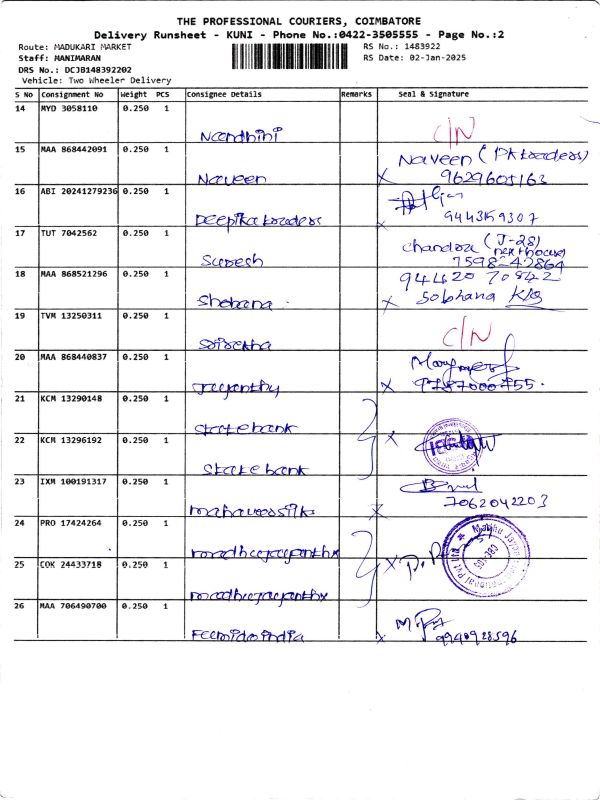 THE PROFESSIONAL COURIERS, COIMBATORE
Delivery Runsheet - KUNI - Phone No.:0422-3505555 - Page No.:2
Route: MADUKARI MARKET RS No.: 1483922
Staff: MANIMARAN RS Date: 02-Jan-2025
DRS No.: DCJB148392202
Vehicle: Two Wheeler Delivery
S No Consignment No Weight PCS Consignee Details Remarks Seal & Signature
14 MYD 3058110 0.250 1
Nandhini C/N
15 MAA 868442091 0.250 1
Naveen Naveen (PK traders)
9629605163
16 ABI 20241279236 0.250 1
Deepika traders
17 TUT 7042562 0.250 1
Suresh Chandra (J-28)
next house
18 MAA 868521296 0.250 1
Shobana 94420 70842
Sobhana
19 TVM 13250311 0.250 1
C/N
20 MAA 868440837 0.250 1
Jayanthy
21 KCM 13290148 0.250 1
State bank
22 KCM 13296192 0.250 1
State bank
23 IXM 100191317 0.250 1
7062042203
24 PRO 17424264 0.250 1
madhujayanthx
25 COK 24433718 0.250 1
madhujayanthx
26 MAA 706490700 0.250 1
9940928596